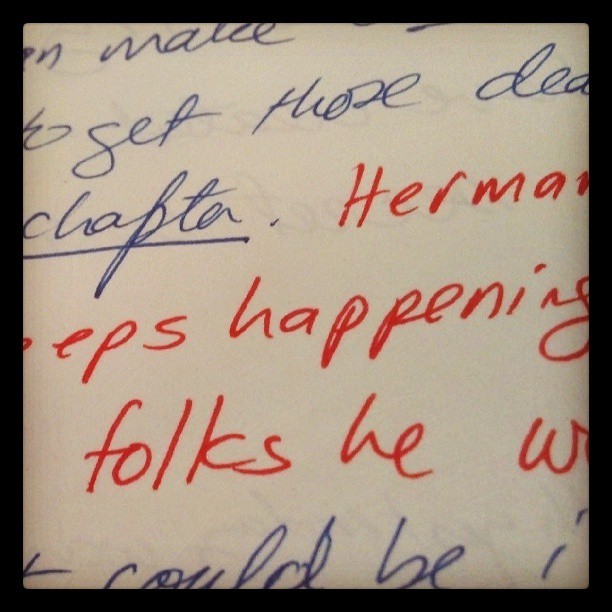 en make
to get those dea
chapter. Herman
eeps happening
folks he w
could be i